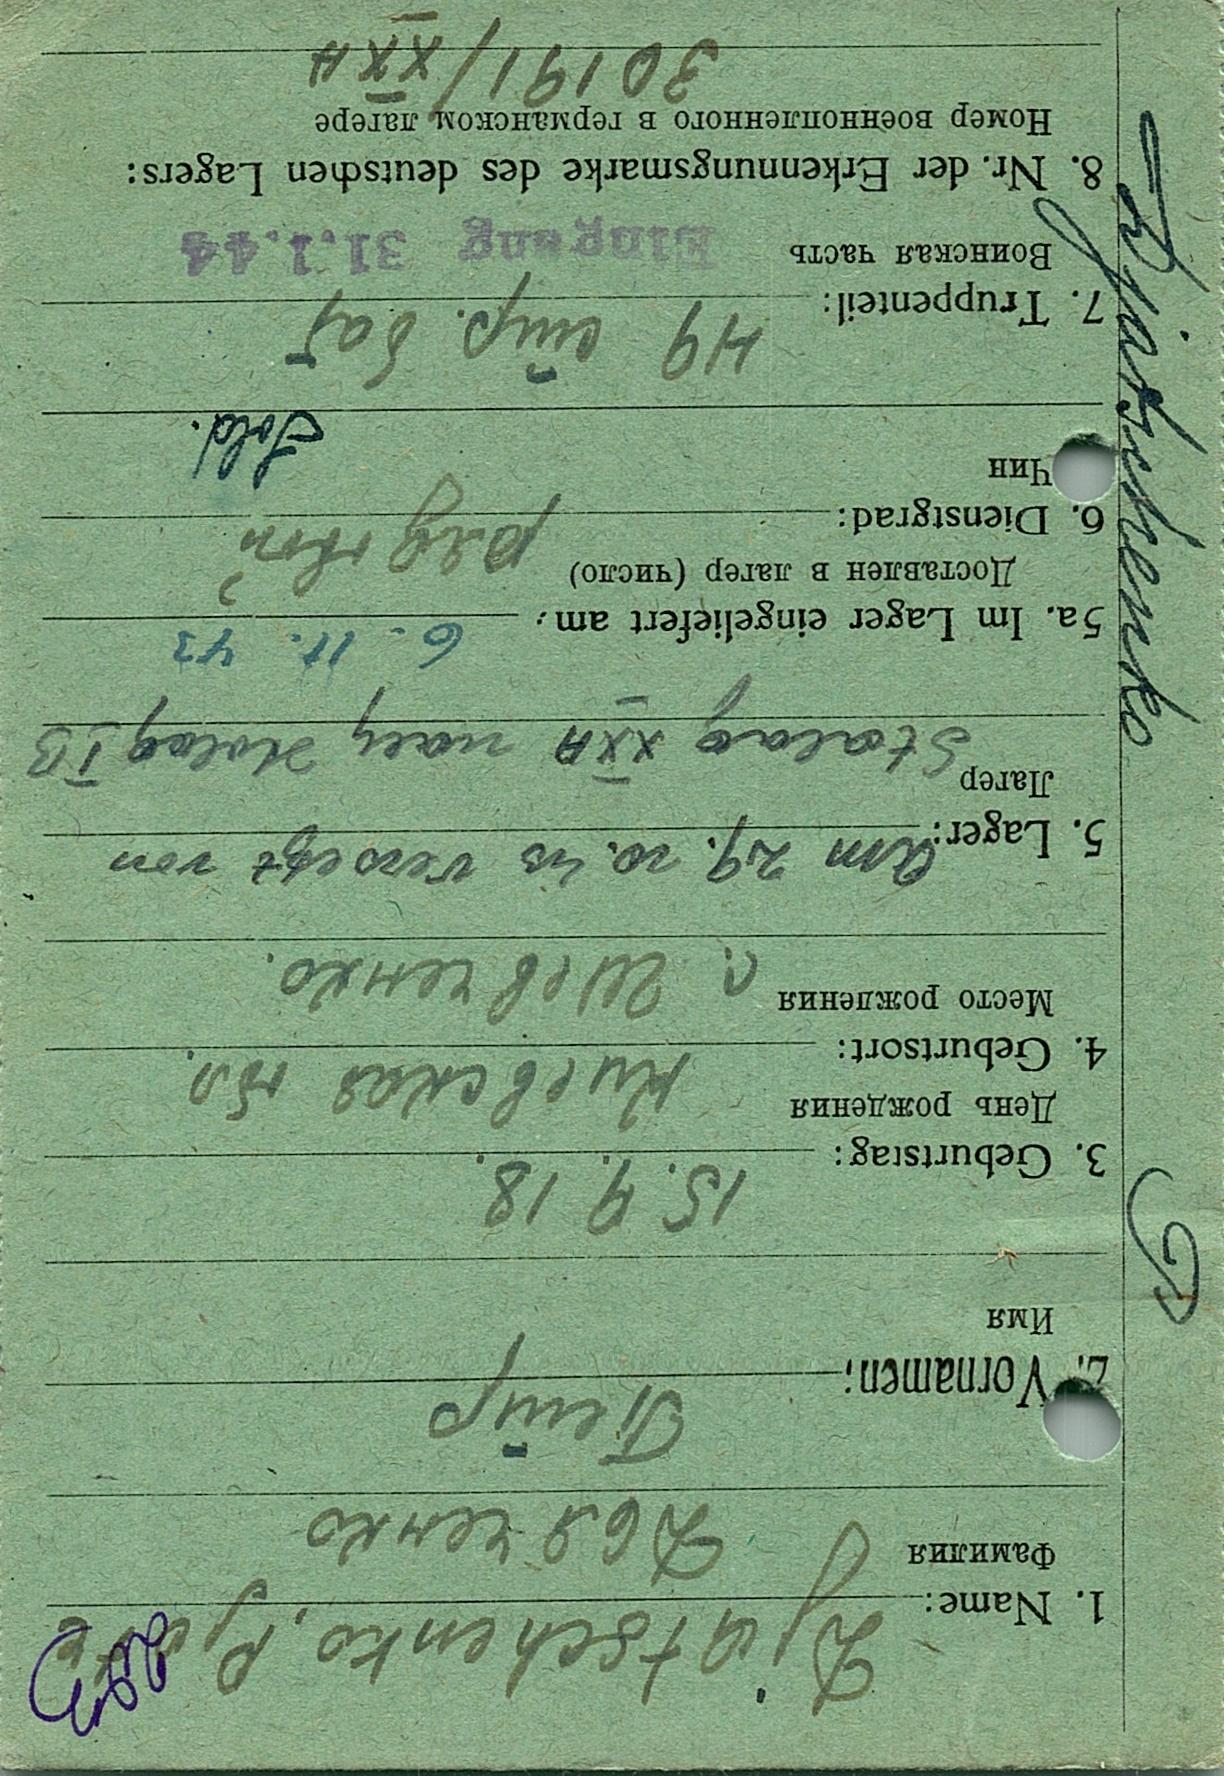 Djatschenko
P
1. Name: Djatschenko, Pjotr
Фамилия Дьяченко
2. Vornamen: Петр
Имя
3. Geburtstag: 15. 9. 18.
День рождения
Киевская обл.
4. Geburtsort:
Место рождения с. Шевченко.
5. Lager: Am 29. 10. 43 versetzt von
Лагер Stalag XXA nach Stalag IB
5a. Im Lager eingeliefert am: 6. 11. 43
Доставлен в лагер (число)
6. Dienstgrad: рядовой
Чин Sold.
7. Truppenteil: 49 стр. бат
Воинская часть Eingang 31.1.44
8. Nr. der Erkennungsmarke des deutschen Lagers:
Номер военнопленного в германском лагере
30191/XXA